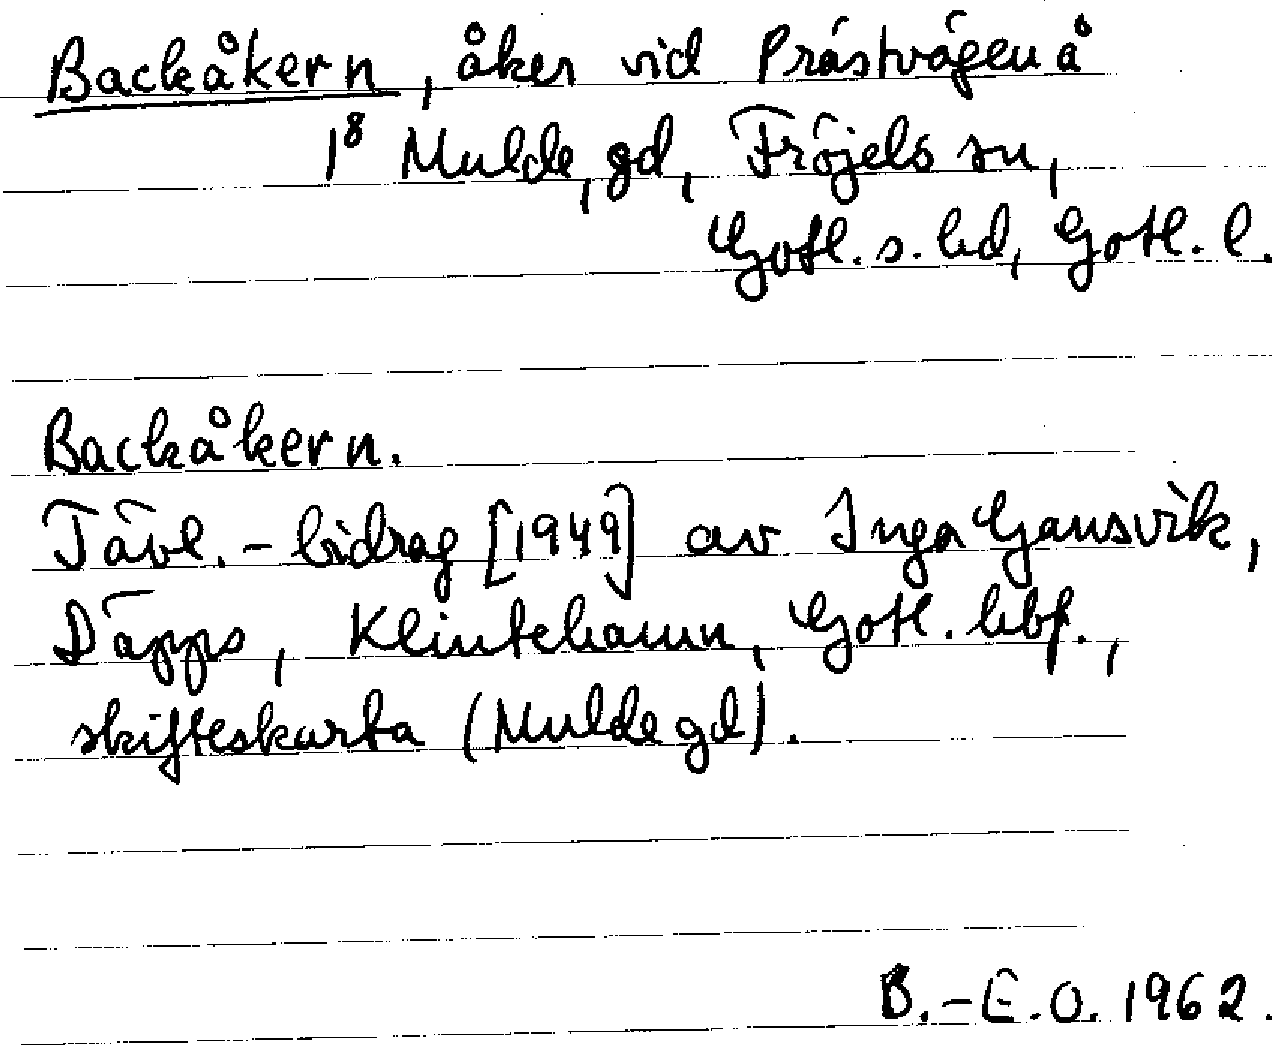 Backåkern, åker vid Prästvägen å
1⁸ Mulde, gd, Fröjels sn,
Gotl. s. hd, Gotl. l.
Backåkern.
Tävl.-bidrag [1949] av Inga Gansvik,
Däpps, Klintehamn, Gotl. hbf.,
skifteskarta (Mulde gd).
B.-E.O. 1962.